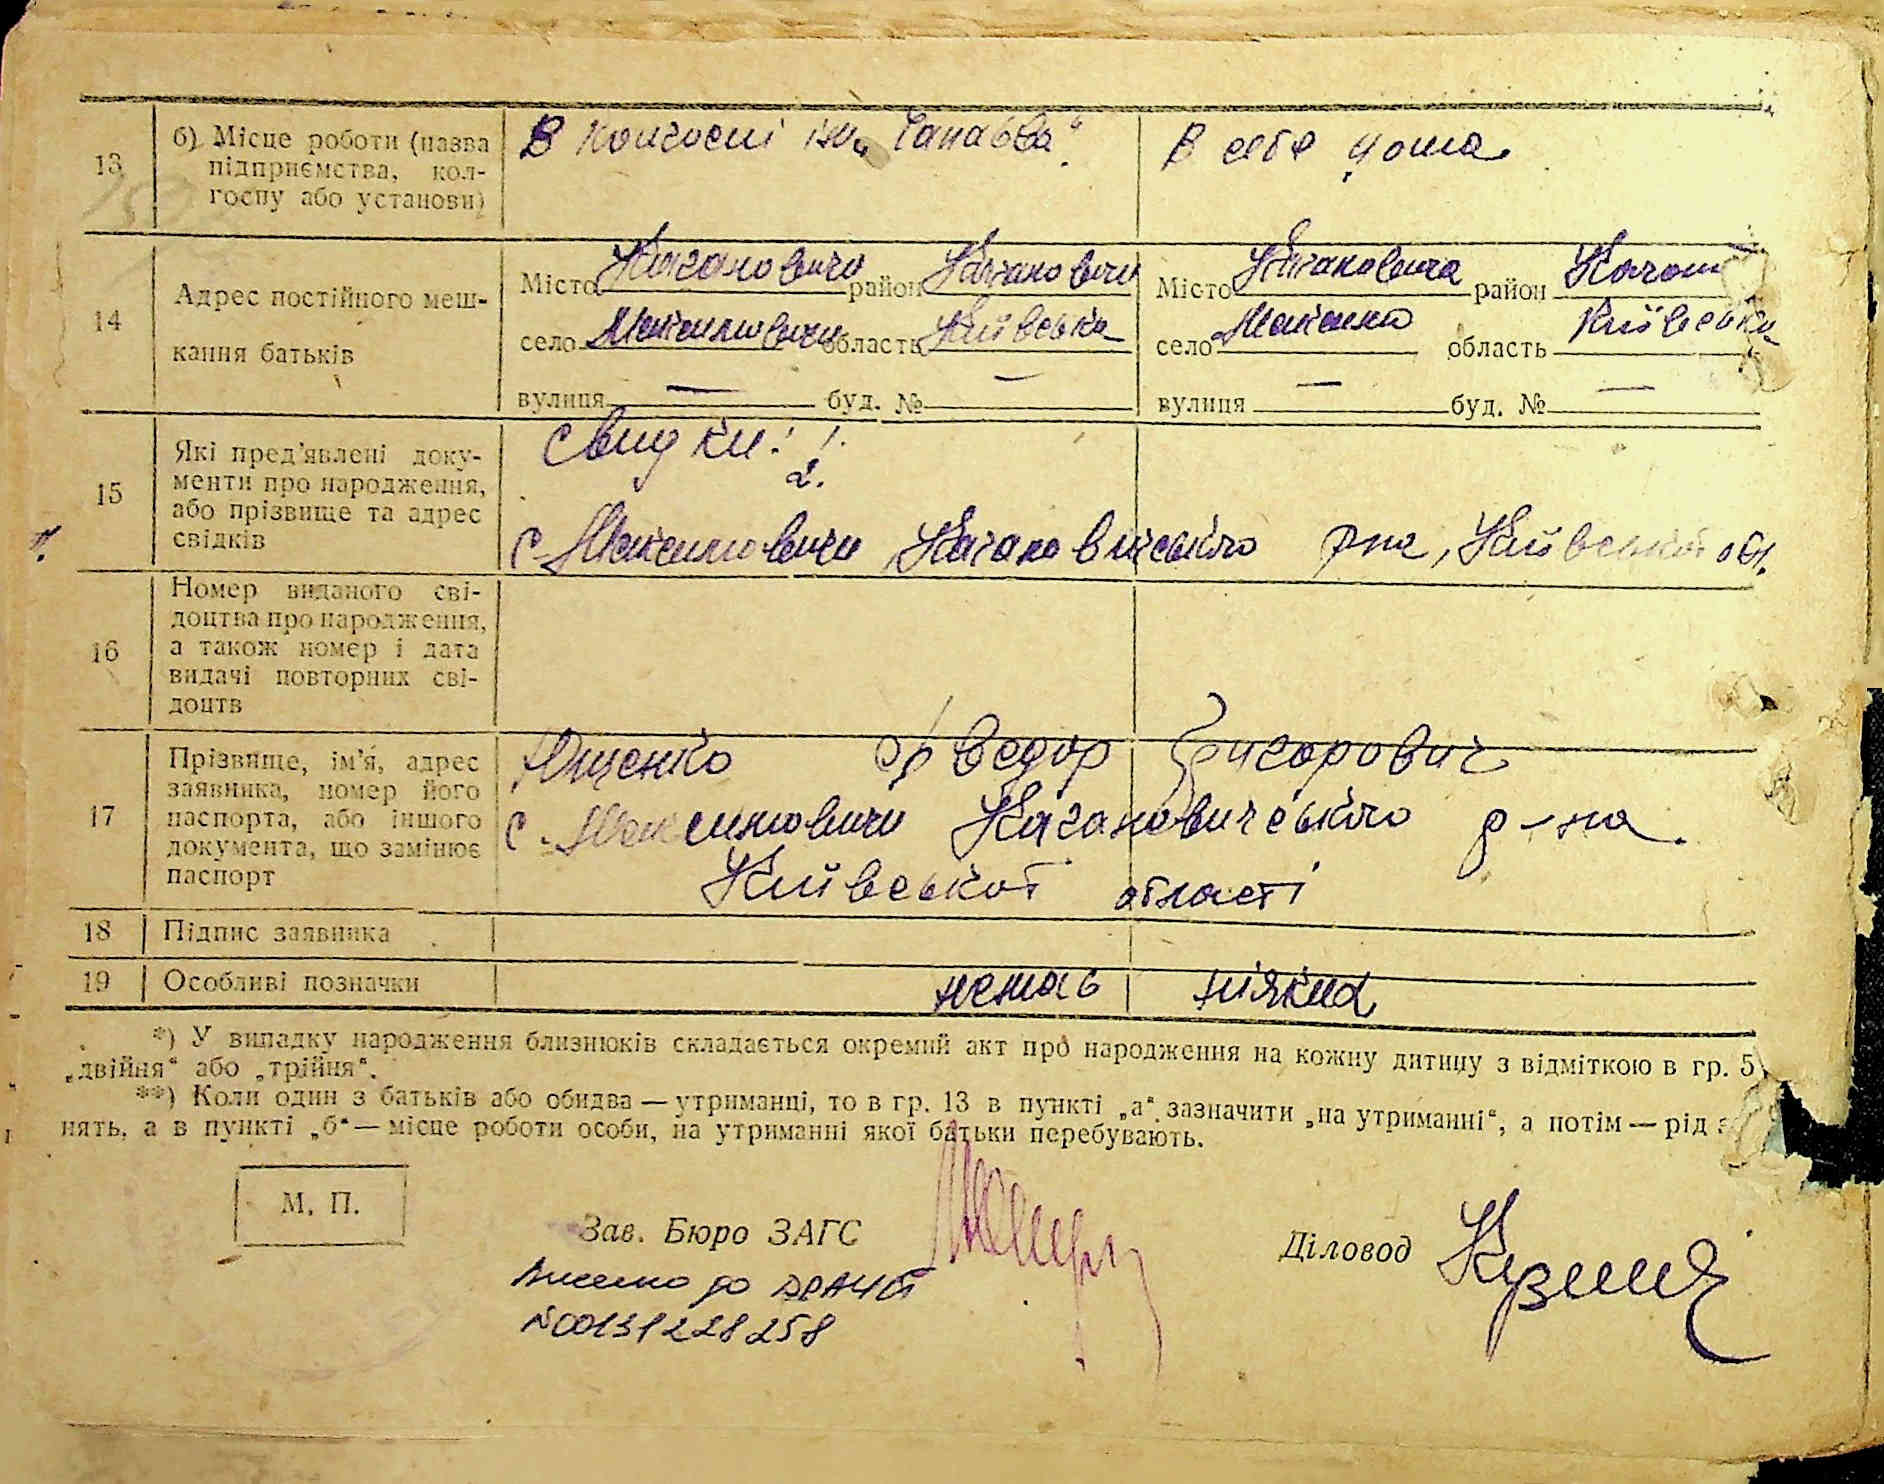 13 б) Місце роботи (назва підприємства, колгоспу або установи)
В колгоспі ім. „Чапаєва“.
В себе дома
14 Адрес постійного мешкання батьків
Місто Кагановичи район Каганович
село Максимовичи область Київська
вулиця — буд. № —
Місто Кагановича район Каган
село Максимо область Київська
вулиця — буд. № —
15 Які пред'явлені документи про народження, або прізвище та адрес свідків
свидки: 1.
2.
с. Максимовичи, Кагановичського р-на, Київської обл.
16 Номер виданого свідоцтва про народження, а також номер і дата видачі повторних свідоцтв
17 Прізвище, ім'я, адрес заявника, номер його паспорта, або іншого документа, що замінює паспорт
Ющенко Фведор Григорович
с. Максимовичи Кагановичського р-на.
Київської області
18 Підпис заявника
19 Особливі позначки
немає ніяких
*) У випадку народження близнюків складається окремий акт про народження на кожну дитину з відміткою в гр. 5,
„двійня“ або „трійня“.
**) Коли один з батьків або обидва — утриманці, то в гр. 13 в пункті „а“ зазначити „на утриманні“, а потім — рід з
нять, а в пункті „б“ — місце роботи особи, на утриманні якої батьки перебувають.
М. П.
Зав. Бюро ЗАГС
Діловод
Внесено до ДРАЦС
№00131228258